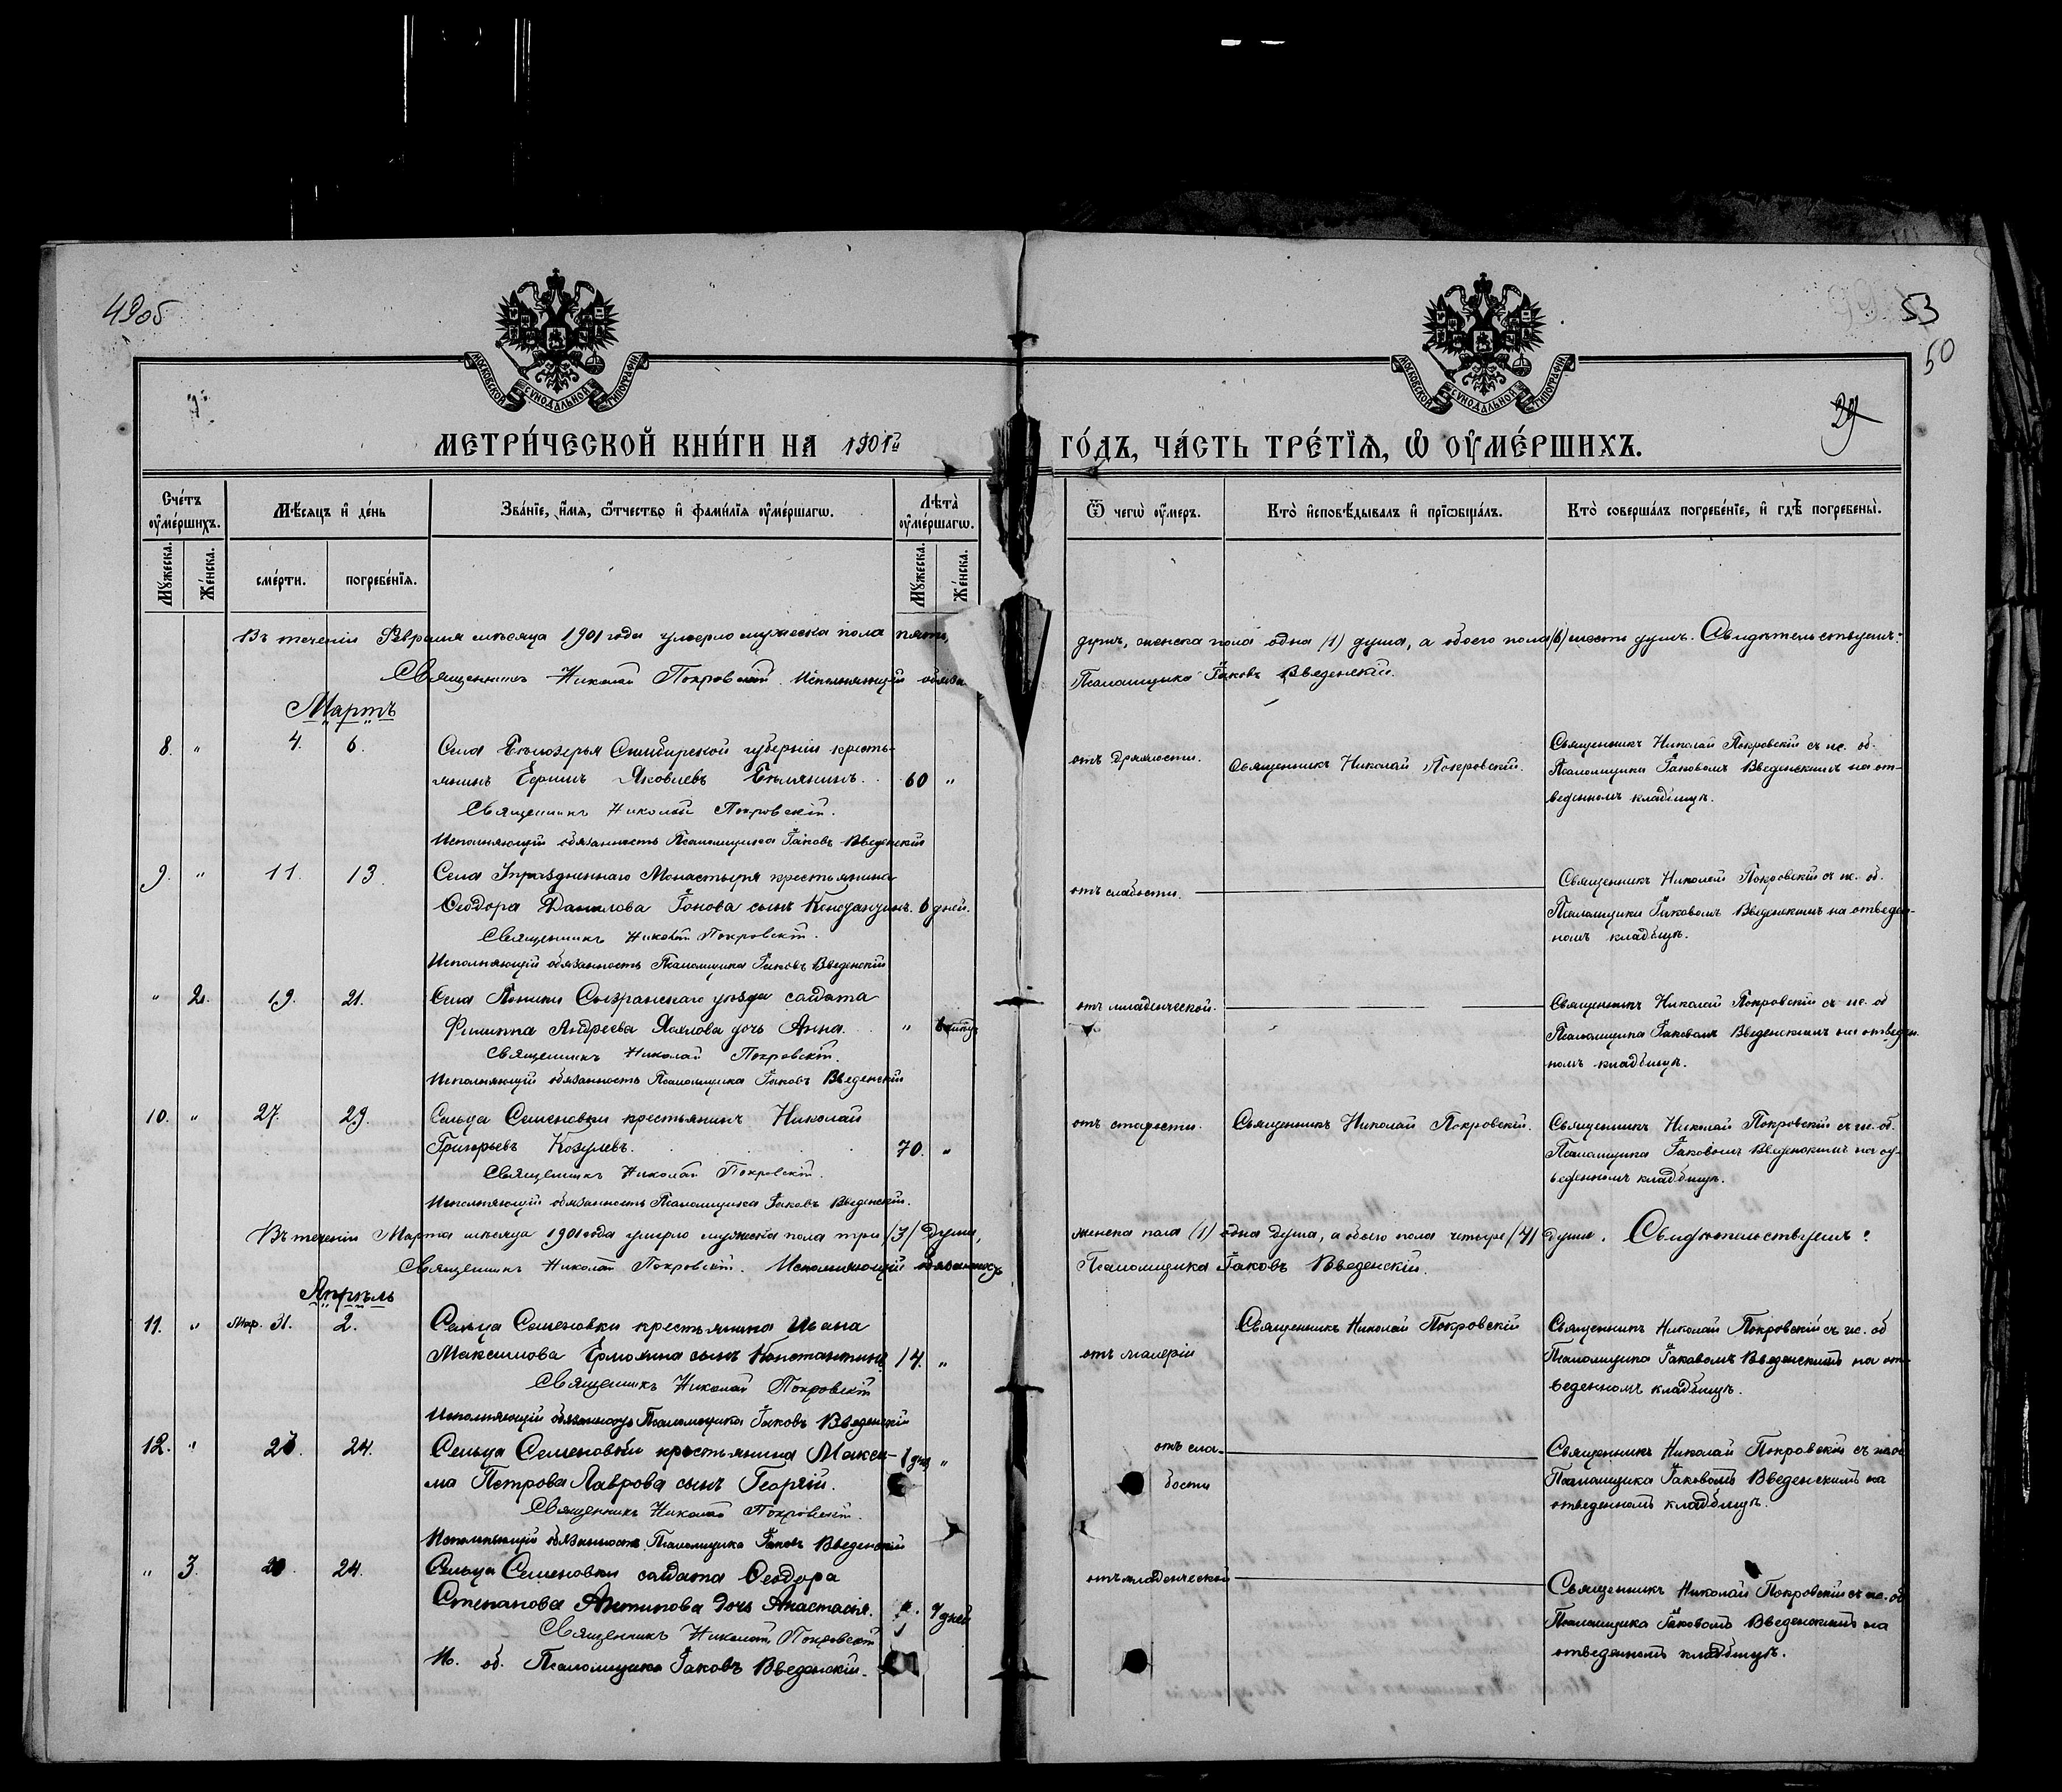 49об
53
50
29
МОСКОВСКОЙ СѴНОДАЛЬНОЙ ТИПОГРАФІИ
МОСКОВСКОЙ СѴНОДАЛЬНОЙ ТИПОГРАФІИ
МЕТРИ́ЧЕСКОЙ КНИ́ГИ НА 1901й ГО́ДЪ, ЧА́СТЬ ТРЕ́ТІѦ, Ѡ ОУМЕ́РШИХЪ.
Сче́тъ оумершихъ.
Мѣсяцъ и де́нь
Зва́ніе, и́мя, ѿтчество и фами́лія оуме́ршагѡ.
Лѣта̀ оуме́ршагѡ.
Ѿ чегѡ̀ оу́меръ.
Кто̀ исповѣ́дывалъ и прїѡбща́лъ.
Кто̀ соверша́лъ погребе́ніе, и гдѣ̀ погребены̀.
Мꙋ́жеска.
Же́нска.
сме́рти.
погребе́нїя.
Мꙋ́жеска.
Же́нска.
Въ теченіи Февраля мѣсяца 1901 года умерло мужеска пола пять, душъ, женска пола одна (1) душа, а обоего пола (6) шесть душъ. Свидѣтельствуемъ:
Священникъ Николай Покровскій. Исполняющій Псаломщика Іаковъ Введенскій.
Мартъ
8. " 4. 6. Села Симбирской губерніи кресть-
янинъ Ефимъ Яковлевъ 60 "
Священникъ Николай Покровскій.
Исполняющій обязанность Псаломщика Іаковъ Введенскій
отъ дряхлости.
Священникъ Николай Покровскій.
Священникъ Николай Покровскій съ ис. об.
Псаломщика Іаковомъ Введенскимъ на от-
веденномъ кладбищѣ.
9. " 11. 13. Села Упраздненнаго Монастыря крестьянина
Ѳеодора Данилова сынъ 6 дней.
Священникъ Николай Покровскій.
Исполняющій обязанность Псаломщика Іаковъ Введенскій
отъ слабости.
Священникъ Николай Покровскій съ ис. об.
Псаломщика Іаковомъ Введенскимъ на отведен-
номъ кладбищѣ.
" 2. 19. 21. Села Сызранскаго уѣзда салдата
Филиппа Андреева дочь Анна. "
Священникъ Николай Покровскій.
Исполняющій обязанность Псаломщика Іаковъ Введенскій
отъ младенческой.
Священникъ Николай Покровскій съ ис. об
Псаломщика Іаковомъ Введенскимъ на отведен-
номъ кладбищѣ.
10. " 27. 29. Сельца Семеновки крестьянинъ Николай
Григорьевъ Козулевъ. 70. "
Священникъ Николай Покровскій.
Исполняющій обязанность Псаломщика Іаковъ Введенскій.
отъ старости.
Священникъ Николай Покровскій.
Священникъ Николай Покровскій съ ис. об.
Псаломщика Іаковомъ Введенскимъ на от-
веденномъ кладбищѣ.
Въ теченіи Марта мѣсяца 1901 года умерло мужеска пола три /3/ души, женска пола (1) одна душа, а обоего пола четыре /4/ души. Свидѣтельствуемъ:
Священникъ Николай Покровскій. Исполняющій обязанность Псаломщика Іаковъ Введенскій.
Апрѣль
11. " Мар. 31. 2. Сельца Семеновки крестьянина Ивана
Максимова Ермохина сынъ Константинъ 14. "
Священникъ Николай Покровскій
Исполняющій обязанность Псаломщика Іаковъ Введенскій
отъ малеріи
Священникъ Николай Покровскій
Священникъ Николай Покровскій съ ис. об
Псаломщика Іаковомъ Введенскимъ на от-
веденномъ кладбищѣ.
12. " 24. Сельца Семеновки крестьянина Макси- 1 "
ма Петрова Лаврова сынъ Георгій.
Священникъ Николай Покровскій.
Исполняющій обязанность Псаломщика Іаковъ Введенскій
отъ сла-
бости
Священникъ Николай Покровскій съ ис. об
Псаломщика Іаковомъ Введенскимъ на
отведенномъ кладбищѣ.
" 3. 20. 24. Сельца Семеновки салдата Ѳеодора
Степанова Антипова дочь Анастасія. 7 дней
Священникъ Николай Покровскій
Ис. об. Псаломщика Іаковъ Введенскій.
отъ младенческой
Священникъ Николай Покровскій съ ис. об
Псаломщика Іаковомъ Введенскимъ на
отведенномъ кладбищѣ.